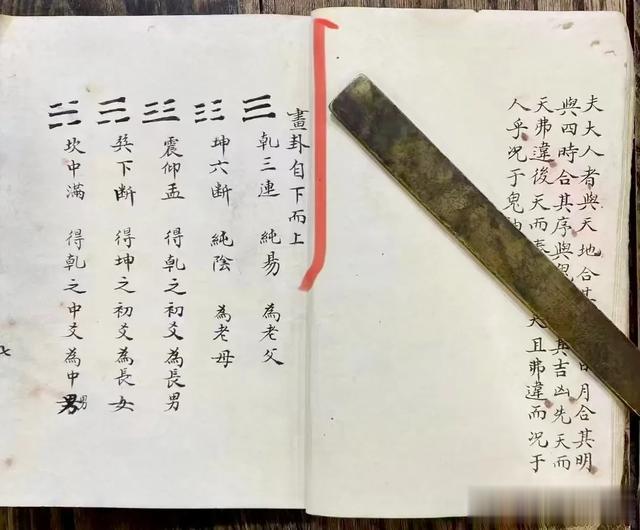 夫大人者與天地合其日月合其明
與四時合其序與其吉凶先天而
天弗違後天而天且弗違而況于
人乎況于鬼
畫卦自下而上
乾三連 純昜 為老父
坤六断 純陰 為老母
震仰盂 得乾之初爻為長男
巽下断 得坤之初爻為長女
坎中滿 得乾之中爻為中男男
七